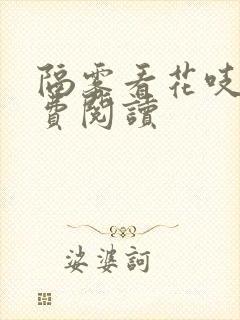 隔雾看花吱
费閱讀
娑婆訶